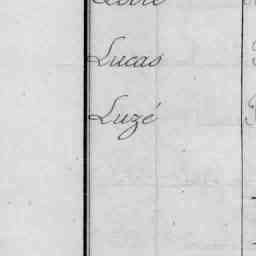 Lucas
Luzé